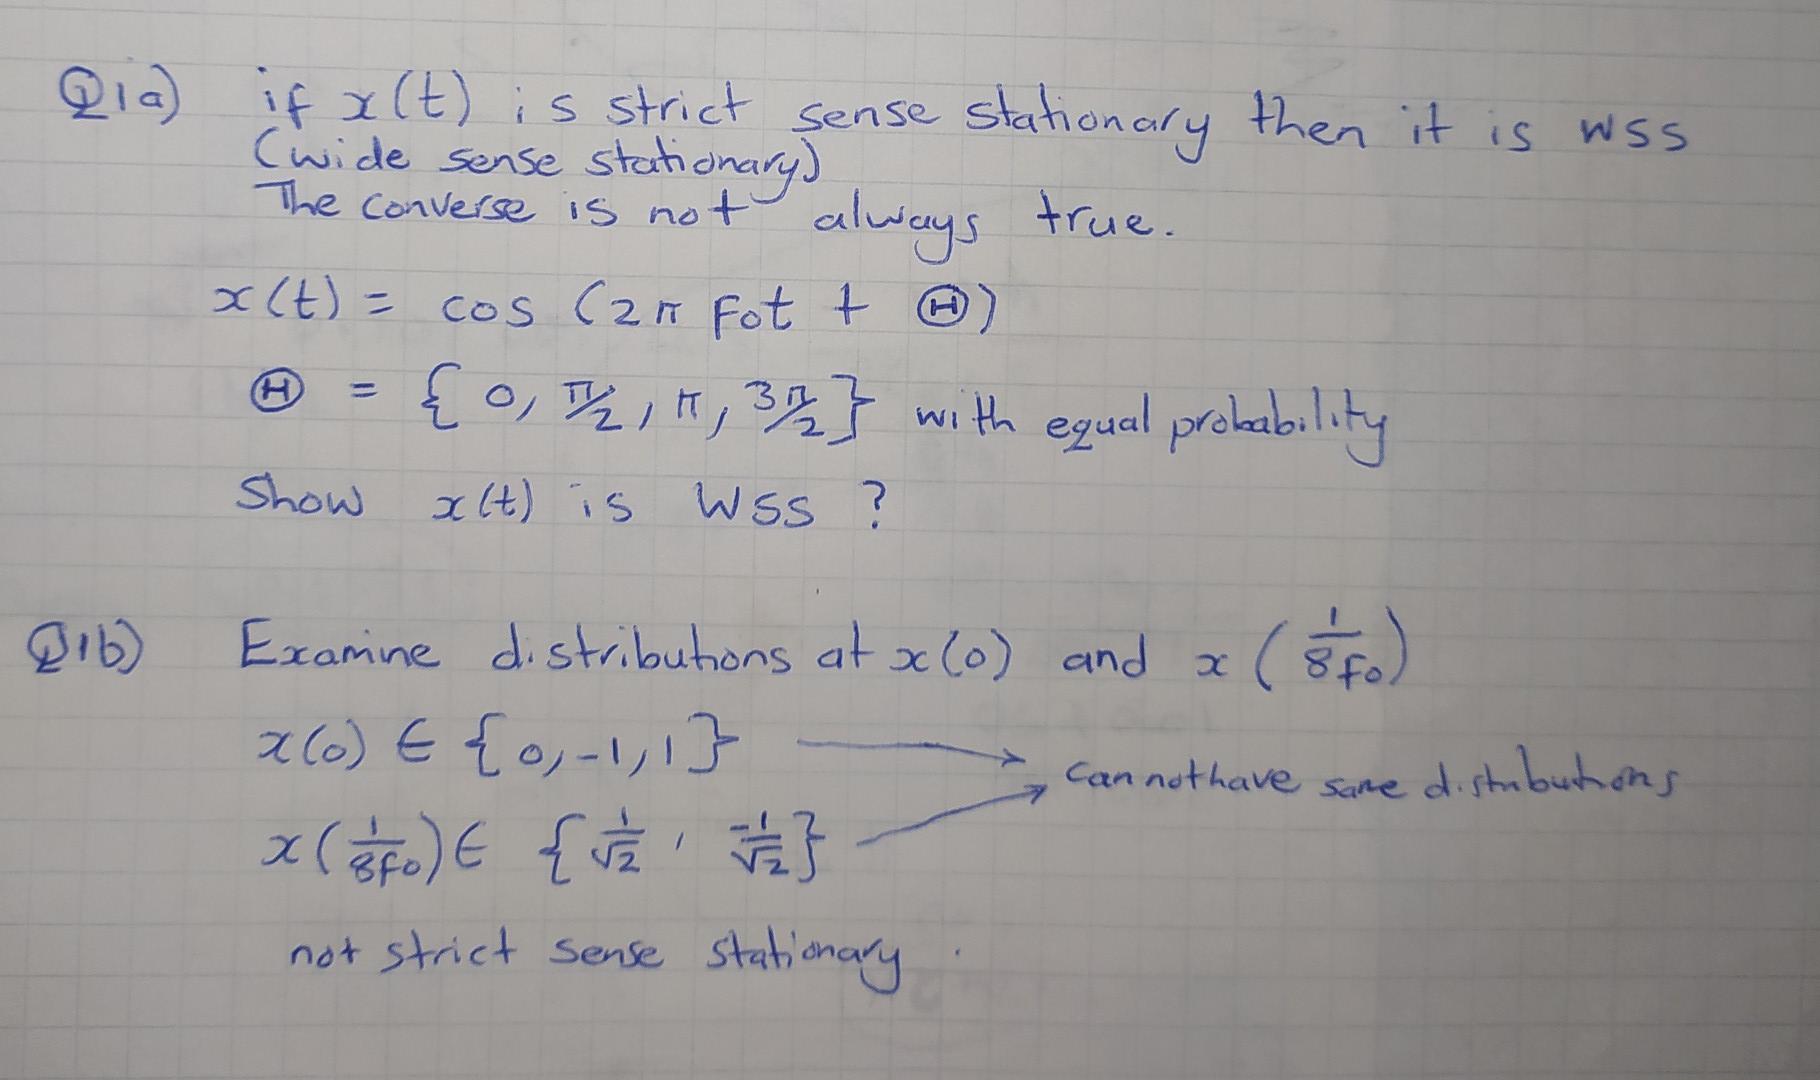 Q1a) if x(t) is strict sense stationary then it is WSS
(wide sense stationary)
The converse is not always true.
x(t) = cos (2π Fot + Θ)
Θ = { 0, π/2, π, 3π/2 } with equal probability
Show x(t) is WSS ?
Q1b) Examine distributions at x(0) and x (1/8fo)
x(0) ∈ {0,-1,1}
Cannot have same distributions
x(1/8fo) ∈ {1/√2, -1/√2}
not strict sense stationary.